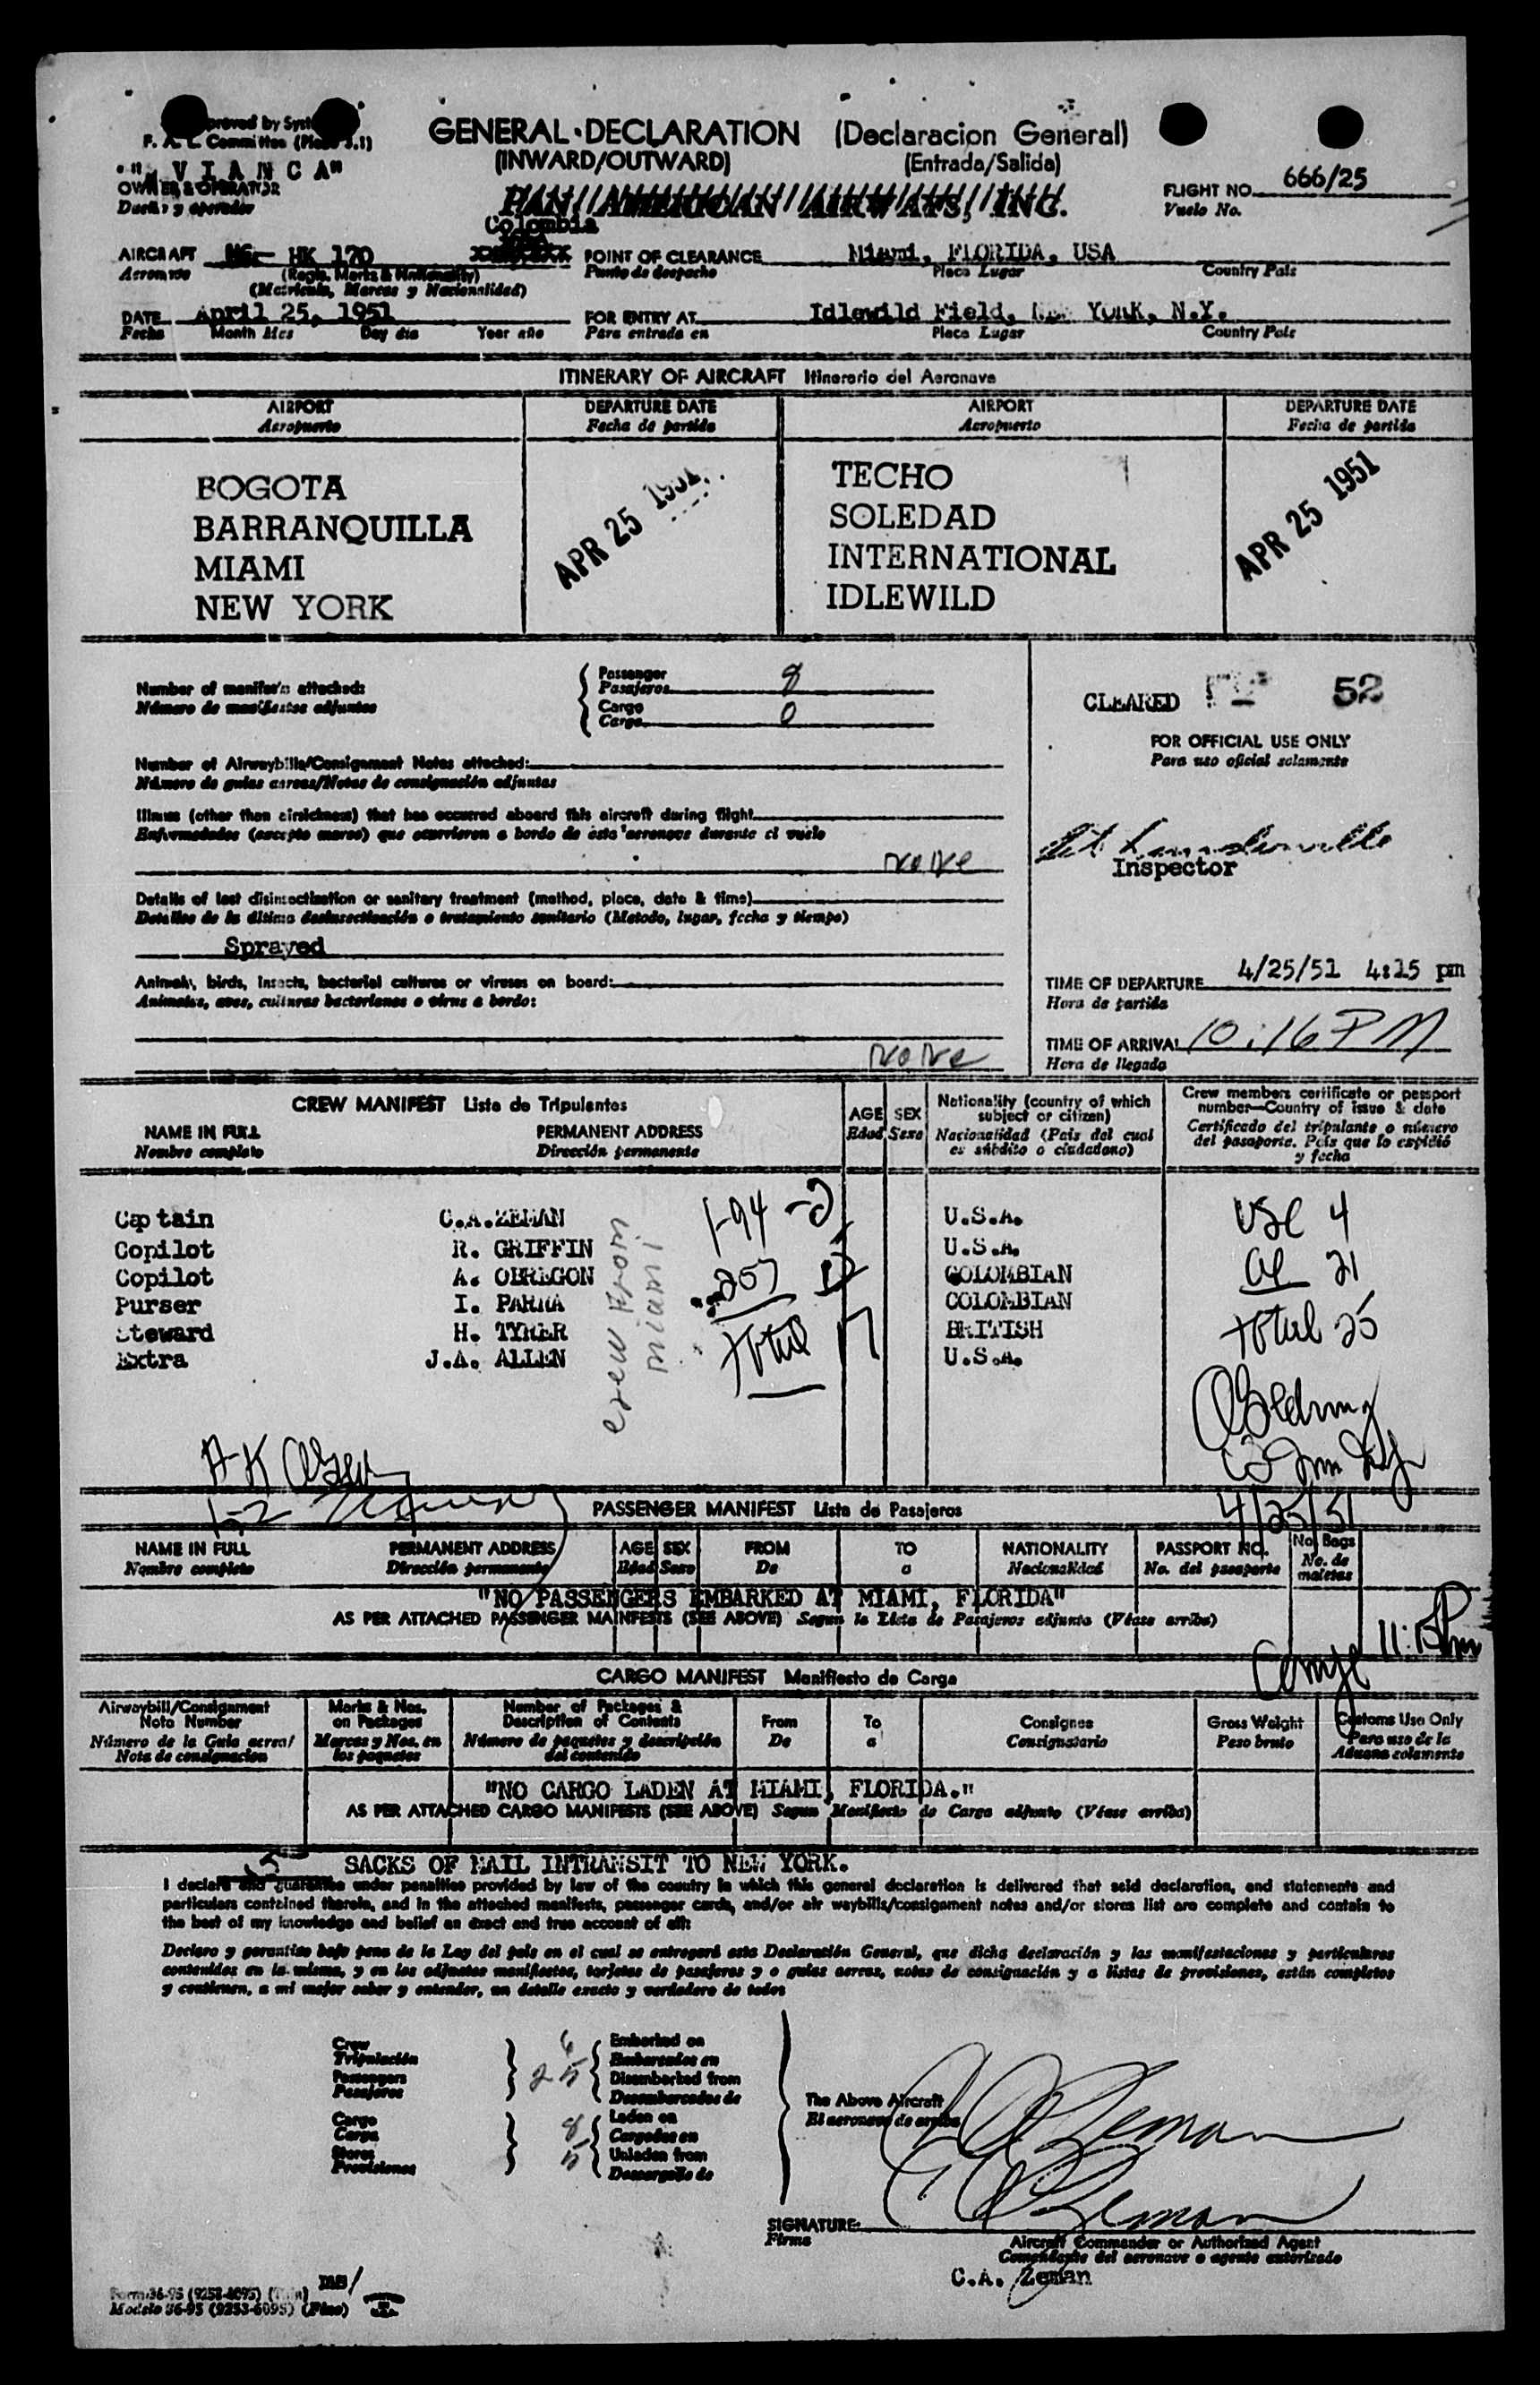 GENERAL DECLARATION (Declaracion General)
F. A. L. Committee
(INWARD/OUTWARD) (Entrada/Salida)
VIANCA"
OWNER & OPERATOR
PAN AMERICAN AIRWAYS, INC.
FLIGHT NO. 666/25
Dueño y operador
Vuelo No.
Colombia
AIRCRAFT HK 170 POINT OF CLEARANCE Miami, FLORIDA, USA
Aeronave (Regis. Marks & Nationality) Punto de despacho Place Lugar Country País
(Matricula, Marcas y Nacionalidad)
DATE April 25, 1951 FOR ENTRY AT Idlewild Field, New York, N.Y.
Fecha Month Mes Day dia Year año Para entrada en Place Lugar Country País
ITINERARY OF AIRCRAFT Itinerario del Aeronave
AIRPORT DEPARTURE DATE AIRPORT DEPARTURE DATE
Aeropuerto Fecha de partida Aeropuerto Fecha de partida
BOGOTA TECHO
BARRANQUILLA SOLEDAD
MIAMI INTERNATIONAL
NEW YORK IDLEWILD
APR 25 1951 APR 25 1951
Number of manifests attached: Passenger Pasajeros 8
Número de manifiestos adjuntos Cargo Carga 0
CLEARED 52
Number of Airwaybills/Consignment Notes attached:
Número de guias aereas/Notas de consignación adjuntas
FOR OFFICIAL USE ONLY
Para uso oficial solamente
Illness (other than airsickness) that has occurred aboard this aircraft during flight
Enfermedades (excepto mareo) que ocurrieron a bordo de esta aeronave durante el vuelo
None
Inspector
Details of last disinsectization or sanitary treatment (method, place, date & time)
Detalles de la última desinsectización o tratamiento sanitario (Metodo, lugar, fecha y tiempo)
Sprayed
Animals, birds, insects, bacterial cultures or viruses on board:
Animales, aves, culturas bacterianas o virus a bordo:
None
TIME OF DEPARTURE 4/25/51 4:15 pm
Hora de partida
TIME OF ARRIVAL 10:16 PM
Hora de llegada
CREW MANIFEST Lista de Tripulantes
NAME IN FULL PERMANENT ADDRESS AGE SEX Nationality (country of which subject or citizen) Crew members certificate or passport number—Country of issue & date
Nombre completo Dirección permanente Edad Sexo Nacionalidad (Pais del cual es súbdito o ciudadano) Certificado del tripulante o número del pasaporte. País que lo expidió y fecha
Captain C.A.ZEMAN U.S.A.
Copilot R. GRIFFIN U.S.A.
Copilot A. OBREGON COLOMBIAN
Purser I. PARRA COLOMBIAN
Steward H. TYRER BRITISH
Extra J.A. ALLEN U.S.A.
crew from
miami
1-94 -2
257
total 17
USC 4
al 21
total 25
4/25/51
PASSENGER MANIFEST Lista de Pasajeros
NAME IN FULL PERMANENT ADDRESS AGE SEX FROM TO NATIONALITY PASSPORT NO. No. Bags
Nombre completo Dirección permanente Edad Sexo De a Nacionalidad No. del pasaporte No. de maletas
"NO PASSENGERS EMBARKED AT MIAMI, FLORIDA"
AS PER ATTACHED PASSENGER MAINFESTS (SEE ABOVE) Segun la Lista de Pasajeros adjunta (Véase arriba)
CARGO MANIFEST Manifiesto de Carga
Airwaybill/Consignment Note Number Marks & Nos. on Packages Number of Packages & Description of Contents From To Consignee Gross Weight Customs Use Only
Número de la Guia aerea/Nota de consignacion Marcas y Nos. en los paquetes Número de paquetes y descripción del contenido De a Consignatario Peso bruto Para uso de la Aduana solamente
"NO CARGO LADEN AT MIAMI, FLORIDA."
AS PER ATTACHED CARGO MANIFESTS (SEE ABOVE) Segun Manifiesto de Carga adjunto (Véase arriba)
SACKS OF MAIL INTRANSIT TO NEW YORK.
I declare and guarantee under penalties provided by law of the country in which this general declaration is delivered that said declaration, and statements and
particulars contained therein, and in the attached manifests, passenger cards, and/or air waybills/consignment notes and/or stores list are complete and contain to
the best of my knowledge and belief an exact and true account of all:
Declaro y garantizo bajo pena de la Ley del país en el cual se entregará esta Declaración General, que dicha declaración y las manifestaciones y particulares
contenidos en la misma, y en los adjuntos manifiestos, tarjetas de pasajeros y o guias aereas, notas de consignación y a listas de provisiones, están completos
y contienen, a mi mejor saber y entender, un detalle exacto y verdadero de todos
Crew 6 Embarked on
Tripulación Embarcados en
Passengers 25 Disembarked from
Pasajeros Desembarcados de
Cargo Laden on
Carga Cargados en
Stores Unladen from
Provisiones Descargado de
The Above Aircraft
El aeronave de arriba
C A Zeman
C A Zeman
SIGNATURE
Firma
Aircraft Commander or Authorized Agent
Comandante del aeronave o agente autorizado
C.A. Zeman